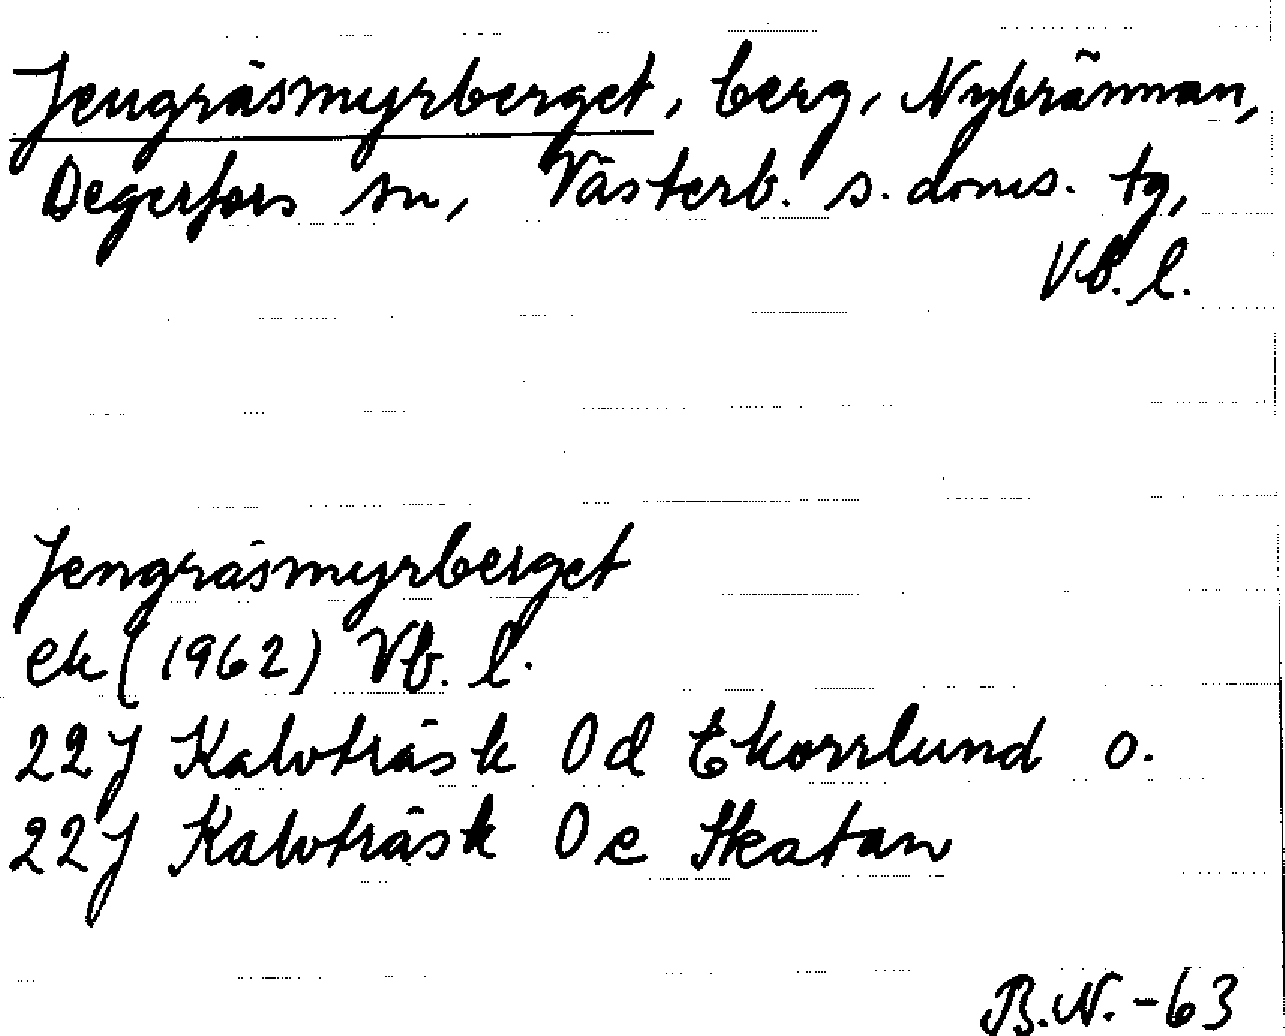 Jengräsmyrberget, berg, Nybrännan,
Degerfors sn, Västerb. s. doms. tg,
Vb. l.
Jengräsmyrberget
ek (1962) Vb. l.
22J Kalvträsk 0d Ekorrlund o.
22J Kalvträsk 0e Skatan
B.N. -63